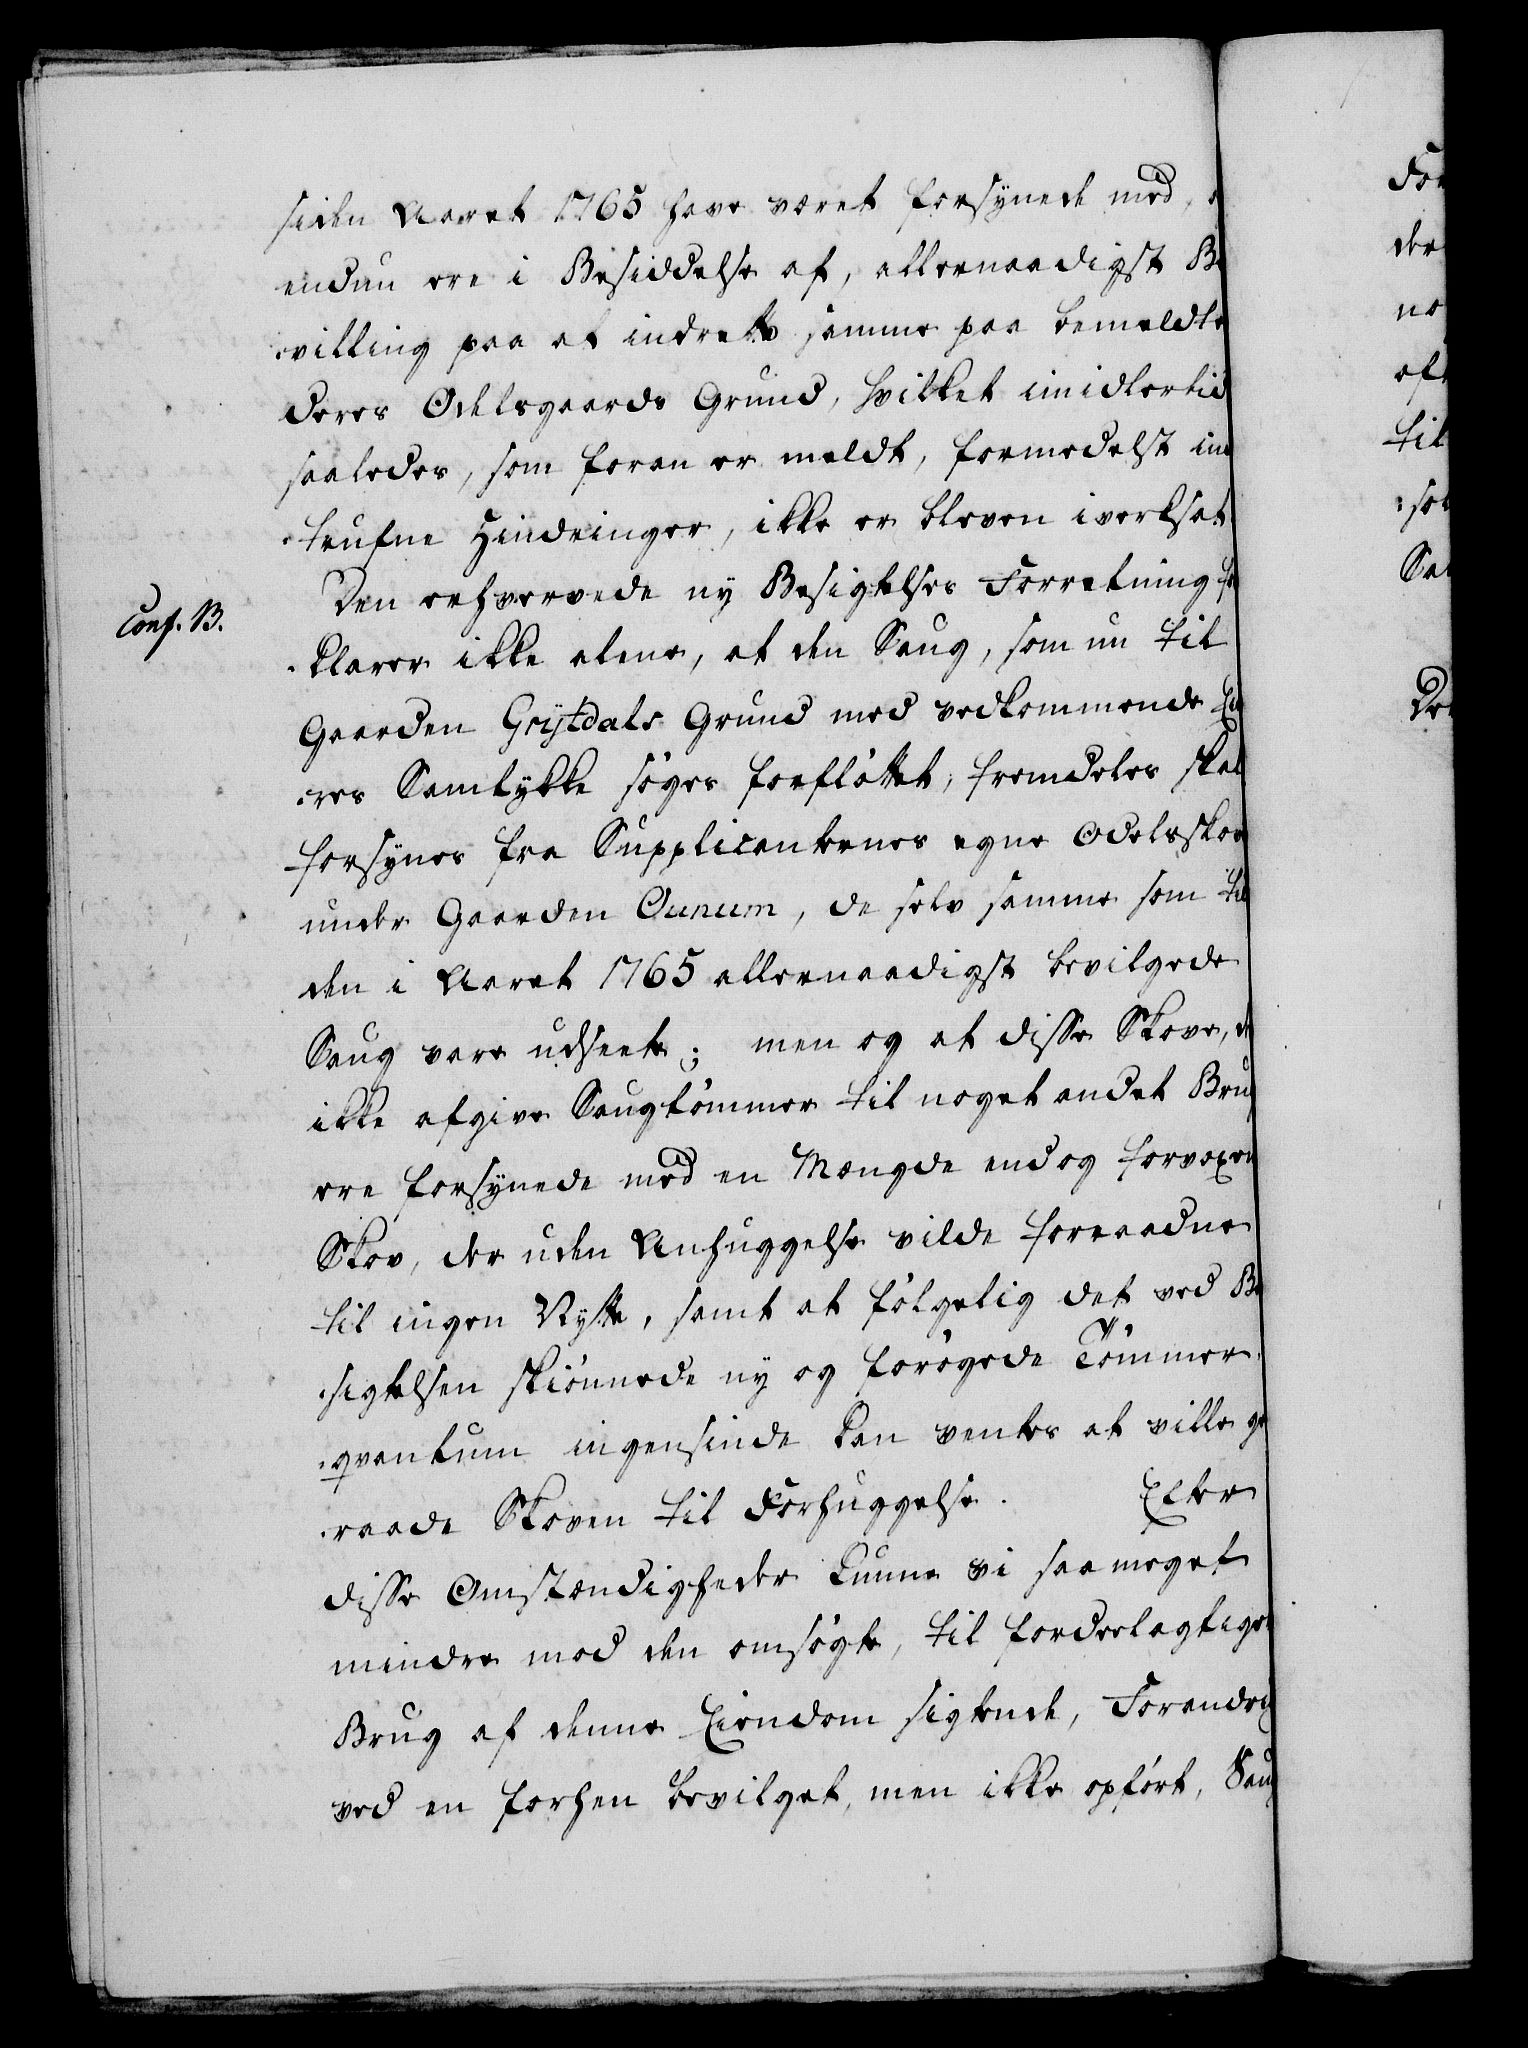 siden Aaret 1765 have været forsynede med,
endnu ere i Besiddelse af, allernaadigst Be
villing paa at indrette samme paa bemeldte
deres Odelsgaards Grund, hvilket imidlertid
saaledes, som foran er meldt, formedelst ind
trufne Hindringer, ikke er bleven iverksat
Den erhvervede ny Besigtelses Forretning for
Conf. B.
klarer ikke alene, at den Saug, som nu til
Gaarden Grÿtdals Grund med vedkommende Ei
eres Samtÿkke søges forfløttet, fremdeles skal
forsÿnes fra Supplicanternes egne Odelsskove
under Gaarden Ounum, de selv samme som til
den i Aaret 1765 allernaadigst bevilgede
Saug vare udseete; men og at disse Skove, der
ikke afgive Saugtømmer til noget andet Brug
ere forsÿnede med en Mængde endog forvoxen
Skov, der uden Anhuggelse vilde forraadne
til ingen Nÿtte, samt at følgelig det ved Be
sigtelsen skiønnede nÿ og forøgede Tømmer-
qvantum ingensinde kan ventes at ville ge
raade Skoven til Forhuggelse. Efter
disse Omstændigheder kunne vi saa meget
mindre mod den omsøgte, til fordeelagtigere
Brug af denne Eiendom sigtende, Forandring
ved en forhen bevilget, men ikke opført, Saug
For
der
no
af
til
Sa
De